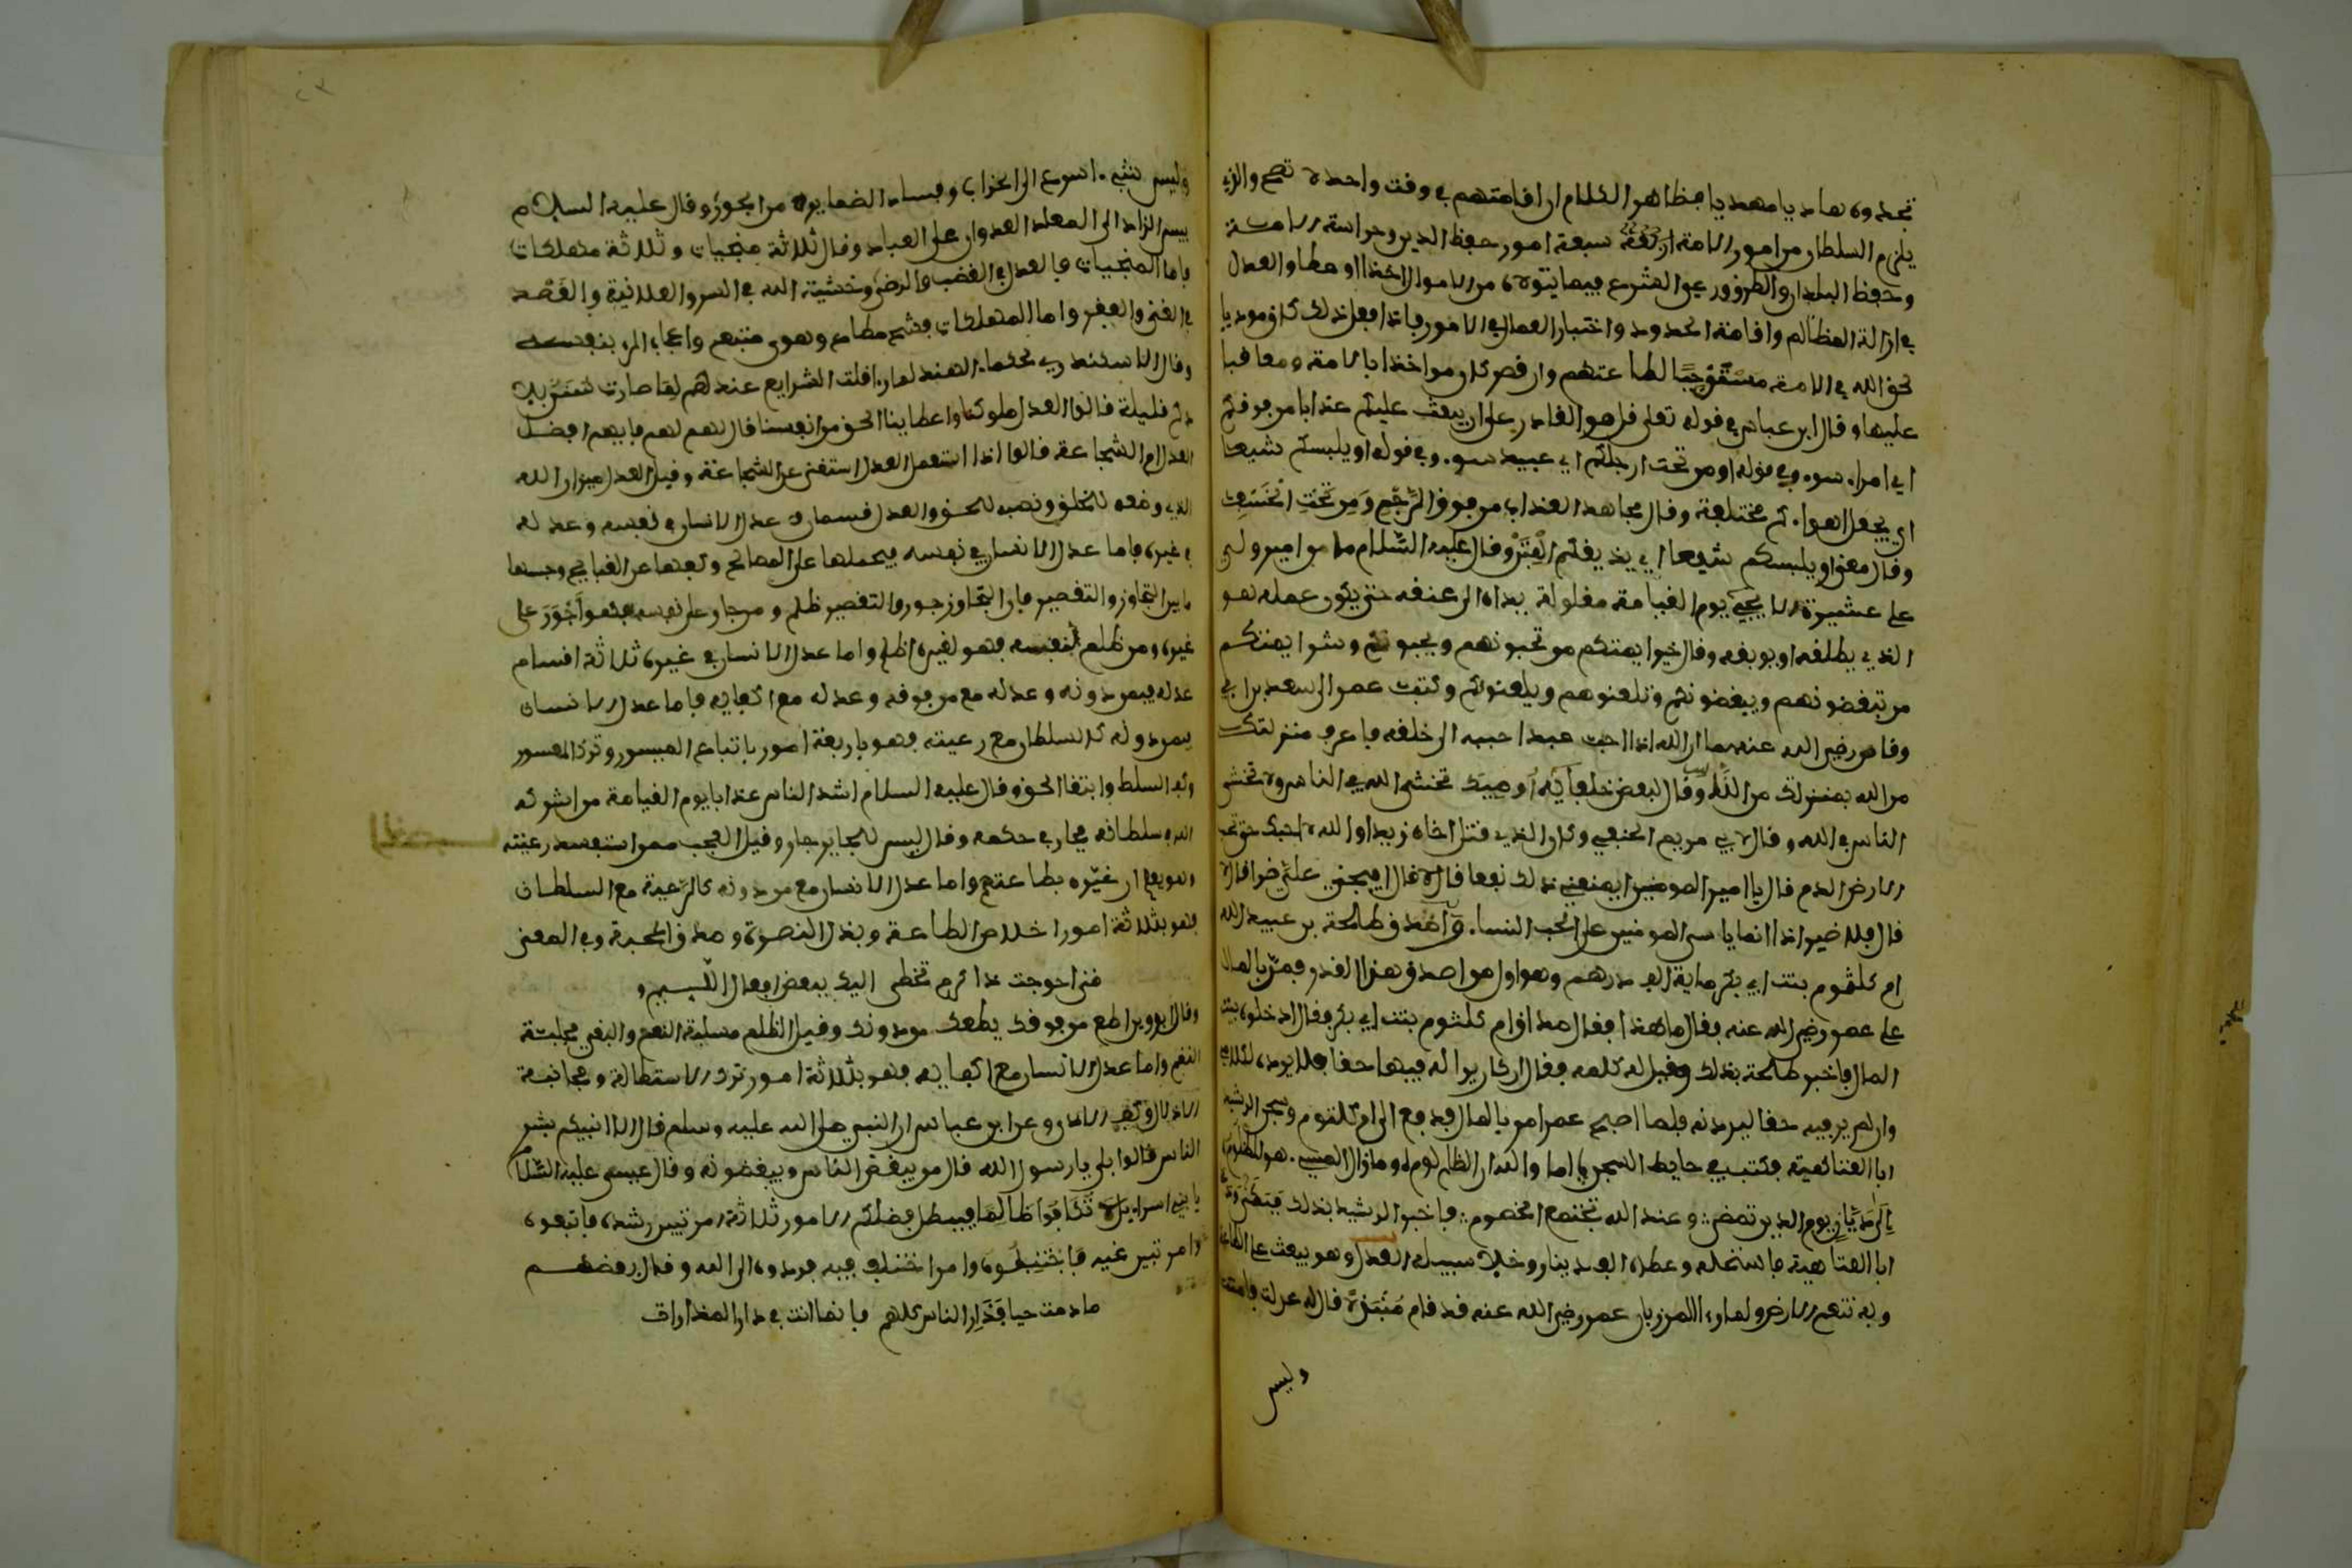 تجدوه هاديا مهديا فظاهر الكلام ان اقامتهم في وقت واحد لا تصح والذي
يلزم السلطان من امور الامة سبعة امور حفظ الدين وحراسة الامة
وعمارة البلدان والطرق ورعي الشرع فيما يتولاه من الاموال اخذا او عطا والعدل
في ازالة المظالم واقامة الحدود واختيار العمال في الامور فاذا فعل ذلك كان موديا
لحق الله في الامة مستوجبا لطاعتهم وان قصر كان مواخذا بالامة ومعاقبا
عليها وقال ابن عباس في قوله تعلى قل هو القادر على ان يبعث عليكم عذابا من فوقكم
اي امراء سوء وفي قوله او من تحت ارجلكم اي عبيد سوء وفي قوله او يلبسكم شيعا
اي يجعل اهواءكم مختلفة وقال مجاهد العذاب من فوق الرجم ومن تحت الخسف
وقال معنى او يلبسكم شيعا اي يذيقكم الفتن وقال عليه السلام ما من امير ولي
على عشيرة الا يجيء يوم القيامة مغلولة يداه الى عنقه حتى يكون عمله هو
الذي يطلقه او يوبقه وقال خير ايمتكم من تحبونهم ويحبونكم وشر ايمتكم
من تبغضونهم ويبغضونكم وتلعنوهم ويلعنونكم وكتب عمر الى سعد بن ابي
وقاص رضي الله عنهما ان الله اذا احب عبدا حببه الى خلقه فاعرف منزلتك
من الله بمنزلتك من الناس وقال لبعض خلفائه اوصيك تخشى الله في الناس ولا تخش
الناس في الله وقال لابي مريم الحنفي وكان الذي قتل اخاه زيدا والله لا احبك حتى تحب
الارض الدم قال يا امير المومنين ايمنعني ذلك نفعا قال لا قال افيجر علي ضرا قال لا
قال فلا ضير اذا انما ياسى المومنين على الحب النساء واصدق طلحة بن عبيد الله
ام كلثوم بنت ابي بكر ماية الف درهم وهو اول من اصدق هذا القدر فمر بالمال
على عمر رضي الله عنه فقال ما هذا فقال صداق ام كلثوم بنت ابي بكر فقال ادخلوه بيت
المال فاخبر طلحة بذلك وقيل له كلمه فقال ان كان يرا له فيها حقا فلا يرده لكلامي
وان لم ير فيه حقا ليردنه فلما اصبح عمر امر بالمال فدفع الى ام كلثوم وسجن الرشيد
ابا العتاهية فكتب في حايط السجن اما والله ان الظلم لوم وما زال المسيء هو الظلوم
الى ديان يوم الدين نمضي وعند الله تجتمع الخصوم فاخبر الرشيد بذلك فبكى ودعا
ابا العتاهية فاستحله وعطاه الف دينار وخلا سبيله العدل وهو يبعث على الطاعة
وبه تنعم الارض ولما رءا المرزبان عمر رضي الله عنه قد قام متبذلا قال له عدلت فامنت
وليس
وليس شيء اسرع الى الخراب وفساد الضماير من الجور وقال عليه السلام
بيس الزاد الى المعاد العدوان على العباد وقال ثلاثة منجيات وثلاثة مهلكات
فاما المنجيات فالعدل في الغضب والرضى وخشية الله في السر والعلانية والقصد
في الغنى والفقر واما المهلكات فشح مطاع وهوى متبع واعجاب المرء بنفسه
وقال الاسكندر لحكماء الهند لما راى قلت الشرايع عندهم لم صارت سنن بلادكم
قليلة قالوا لعدل ملوكنا واعطاينا الحق من انفسنا قال لهم فايهم افضل
العدل ام الشجاعة قالوا اذا استعمل العدل استغني عن الشجاعة وقيل العدل ميزان الله
الذي وضعه للخلق ونصبه للحق والعدل قسمان عدل الانسان في نفسه وعدله
في غيره فاما عدل الانسان في نفسه فيحملها على المصالح وكفها عن القبايح
ما بين التجاوز والتقصير فان التجاوز جور والتقصير ظلم ومن جار على نفسه فهو اجور على
غيره ومن ظلم نفسه فهو لغيره اظلم واما عدل الانسان في غيره ثلاثة اقسام
عدله فيمن دونه وعدله مع من فوقه وعدله مع اكفايه فاما عدل الانسان
فيمن دونه كالسلطان مع رعيته فهو باربعة امور باتباع الميسور وترك المعسور
وترك التسلط وابتغا الحق وقال عليه السلام اشد الناس عذابا يوم القيامة من اشركه
الله في سلطانه فجار في حكمه وقال ليس للجاير جار وقيل العجب ممن استفسد رعيته
وهو يعلم ان عزه بطاعتهم واما عدل الانسان مع من دونه كالرعية مع السلطان
فهو بثلاثة امور اخلاص الطاعة وبذل النصرة وصدق المحبة وفي المعنى
متى احوجت ذا كرم تخطى اليك ببعض افعال اللييم
وقال ابرويز اطع من فوقك يطعك من دونك وقيل الظلم مسلبة النعم والبغي مجلبة
النقم واما عدل الانسان مع اكفايه فهو بثلاثة امور ترك الاستطالة ومجانبة
الاذلال وكف الاذى وعن ابن عباس ان النبي صلى الله عليه وسلم قال الا انبيكم بشر
الناس قالوا بلى يا رسول الله قال من يبغض الناس ويبغضونه وقال عيسى عليه السلام
يا بني اسراءيل لا تكافوا ظالما فيبطل فضلكم الامور ثلاثة امر تبين رشده فاتبعوه
وامر تبين غيه فاجتنبوه وامر اختلف فيه فردوه الى الله وقال بعضهم
ما دمت حيا فدار الناس كلهم فانما انت في دار المدارات